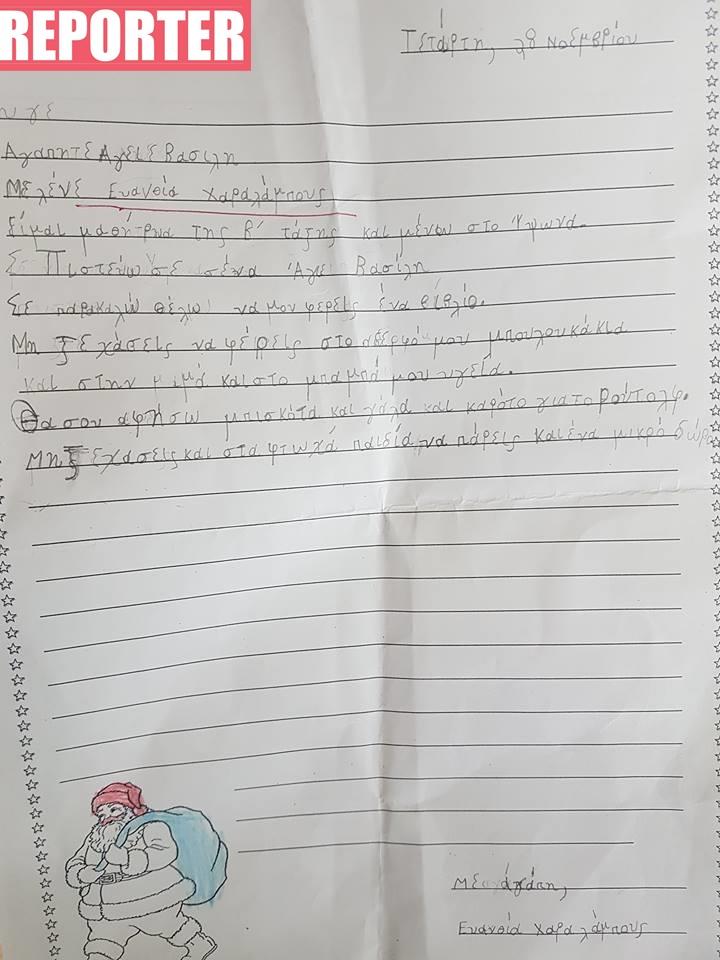 REPORTER
Τετάρτη, 28 Νοεμβρίου
Αγαπητε Αγειε Βασιλη
Με λένε Ευανθία Χαραλάμπους
Είμαι μαθήτρια της β' τάξης και μένω στο Ύψωνα.
Πιστεύω σε σένα Άγιε Βασίλη
Σε παρακαλώ θέλω να μου φερεις ένα βιβλίο.
Μη ξεχάσεις να φέρεις στο αδερφό μου μπουλουκάκια
και στην μαμά και στο μπαμπά μου υγεία.
Θα σου αφήσω μπισκότα και γάλα και καρότο για το Ρούντολφ.
Μη ξεχάσεις και στα φτωχά παιδιά να πάρεις και ένα μικρό δώρο
Με αγάπη,
Ευανθία Χαραλάμπους